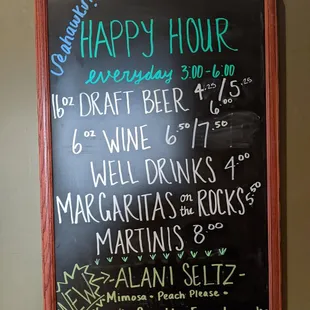 Seahawks!
HAPPY HOUR
everyday 3:00-6:00
16oz DRAFT BEER 4.25/5.25
6.00
6oz WINE 6.50/7.50
WELL DRINKS 4.00
MARGARITAS on the ROCKS 5.50
MARTINIS 8.00
NEW
-ALANI SELTZ-
-Mimosa • Peach Please •